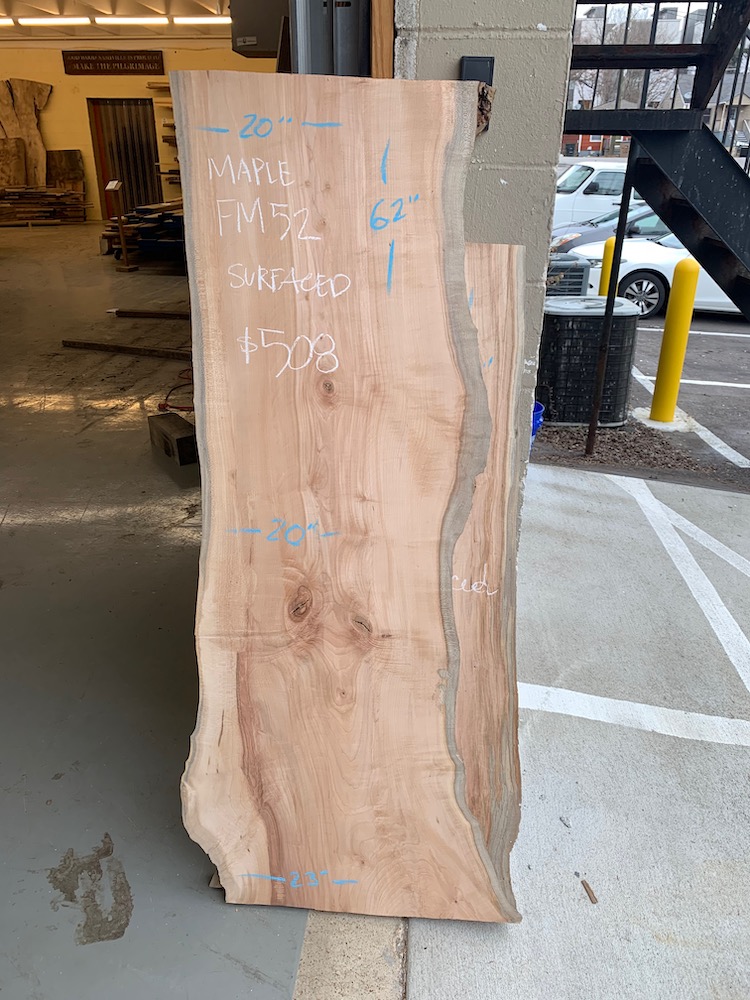 MAKE THE PILGRIMAGE
20"
MAPLE
FM52
62"
SURFACED
$508
20"
23"